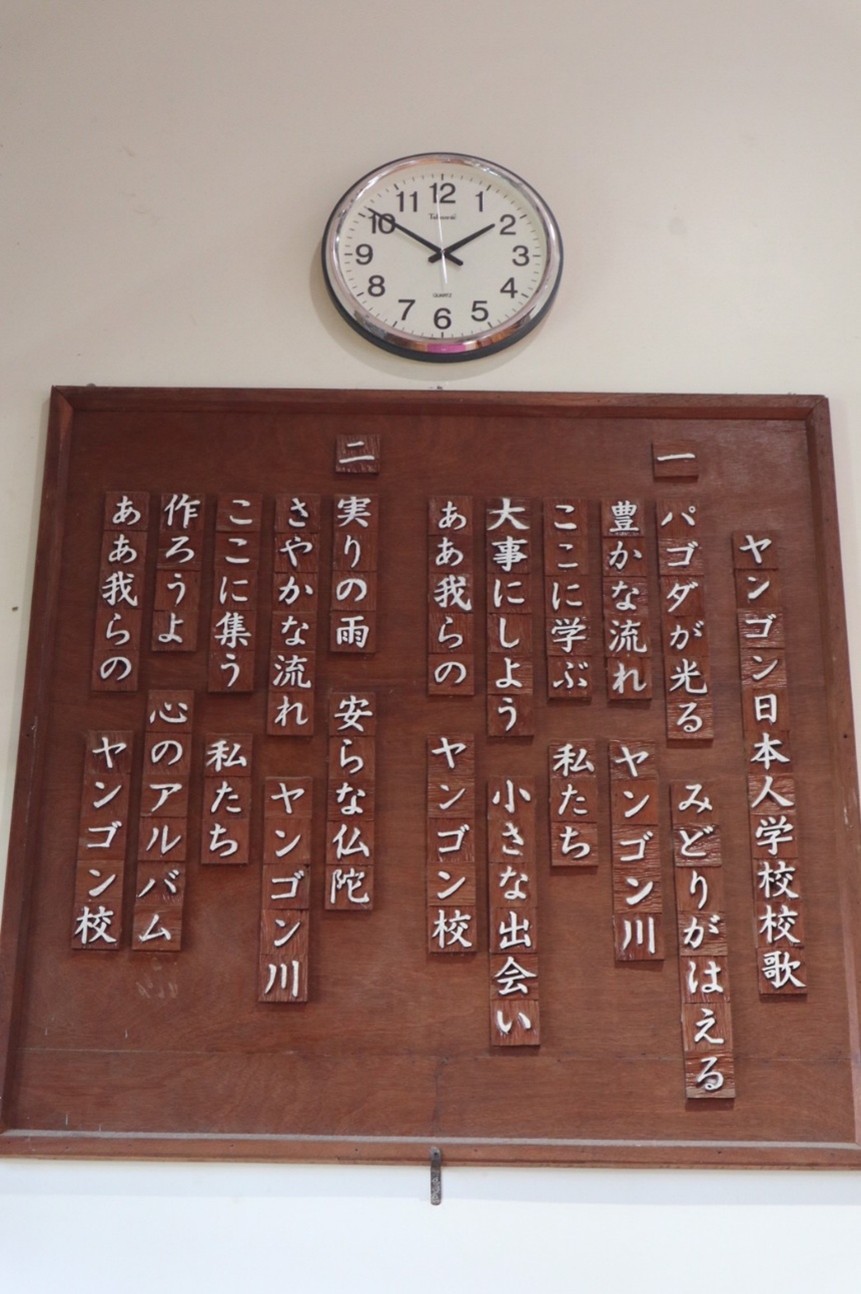 11 12 1
10 2
9 3
8 4
7 6 5
QUARTZ
ヤンゴン日本人学校校歌
一
パゴダが光る みどりがはえる
豊かな流れ ヤンゴン川
ここに学ぶ 私たち
大事にしよう 小さな出会い
ああ我らの ヤンゴン校
二
実りの雨 安らな仏陀
さやかな流れ ヤンゴン川
ここに集う 私たち
作ろうよ 心のアルバム
ああ我らの ヤンゴン校